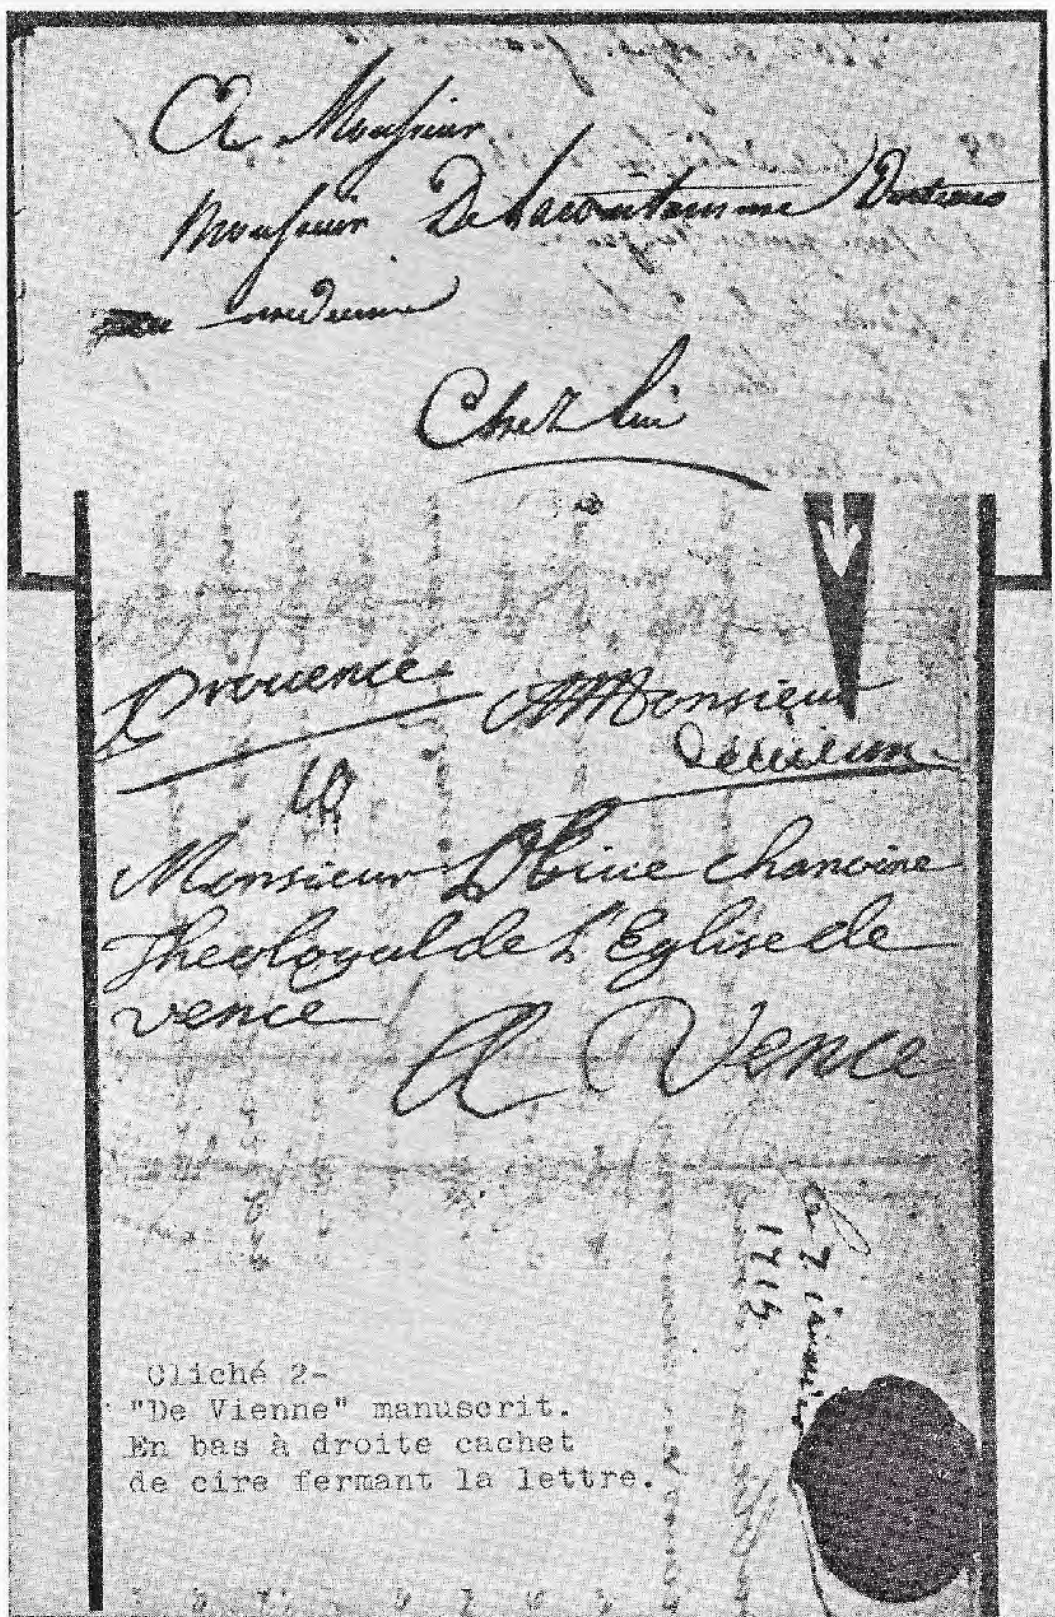 A Monsieur
Monsieur De Docteur
en medecine
Chez lui
Provence
A Monsieur
devienne
Monsieur chanoine
Theologal de L'Eglise de
vence
A Vence
le 7 janvier
1715
Cliché 2-
"De Vienne" manuscrit.
En bas à droite cachet
de cire fermant la lettre.